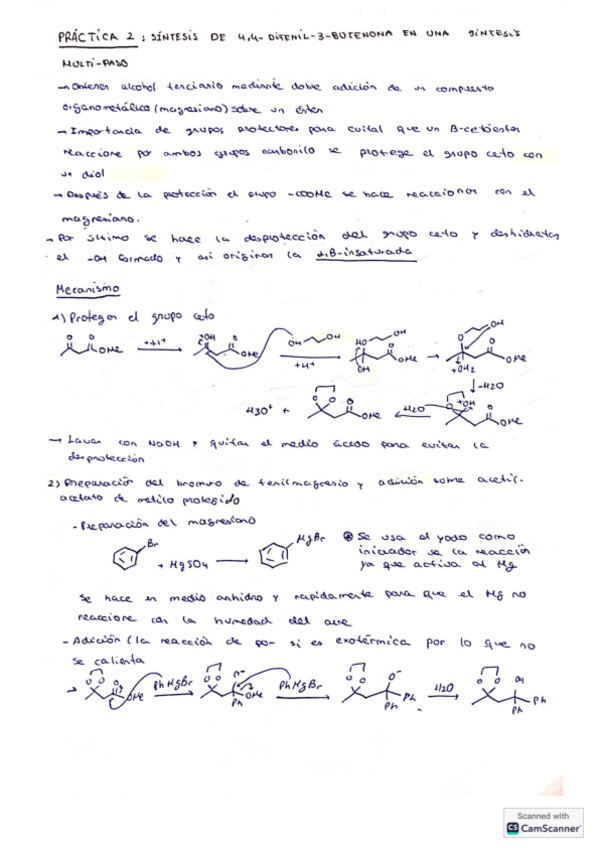 PRÁCTICA 2: SÍNTESIS DE 4,4-DIFENIL-3-BUTENONA EN UNA SÍNTESIS
MULTI-PASO
→ Obtener alcohol terciario mediante doble adición de un compuesto
organometálico (magresiano) sobre un éster
→ Importancia de grupos protectores para evitar que un B-cetoéster
reaccione por ambos grupos carbonilo se protege el grupo ceto con
un diol
→ Después de la protección el grupo -COOMe se hace reaccionar con el
magresiano.
→ Por último se hace la desprotección del grupo ceto y deshidratar
el -OH formado y así originar la α,B-insaturada
Mecanismo
1) Proteger el grupo ceto
O O OMe +H+ OH O OMe OH OH +H+ HO O OH O OMe OH → O OH O OMe +OH2
↓ -H2O
H3O+ + O O O OMe H2O O +OH O OMe
→ Lavar con NaOH y quitar el medio ácido para evitar la
desprotección
2) Preparación del bromuro de fenilmagresio y adición sobre acetil-
acetato de metilo protegido
- Preparación del magresiano
Br + MgSO4 → MgBr
⊛ Se usa el yodo como
iniciador de la reacción
ya que activa al Mg
Se hace en medio anhidro y rapidamente para que el Mg no
reaccione con la humedad del aire
- Adición (la reacción de por si es exotérmica por lo que no
se calienta
→ O O O OMe PhMgBr O O O- OMe Ph PhMgBr O O O- Ph Ph H2O O O OH Ph Ph
Scanned with
CS CamScanner